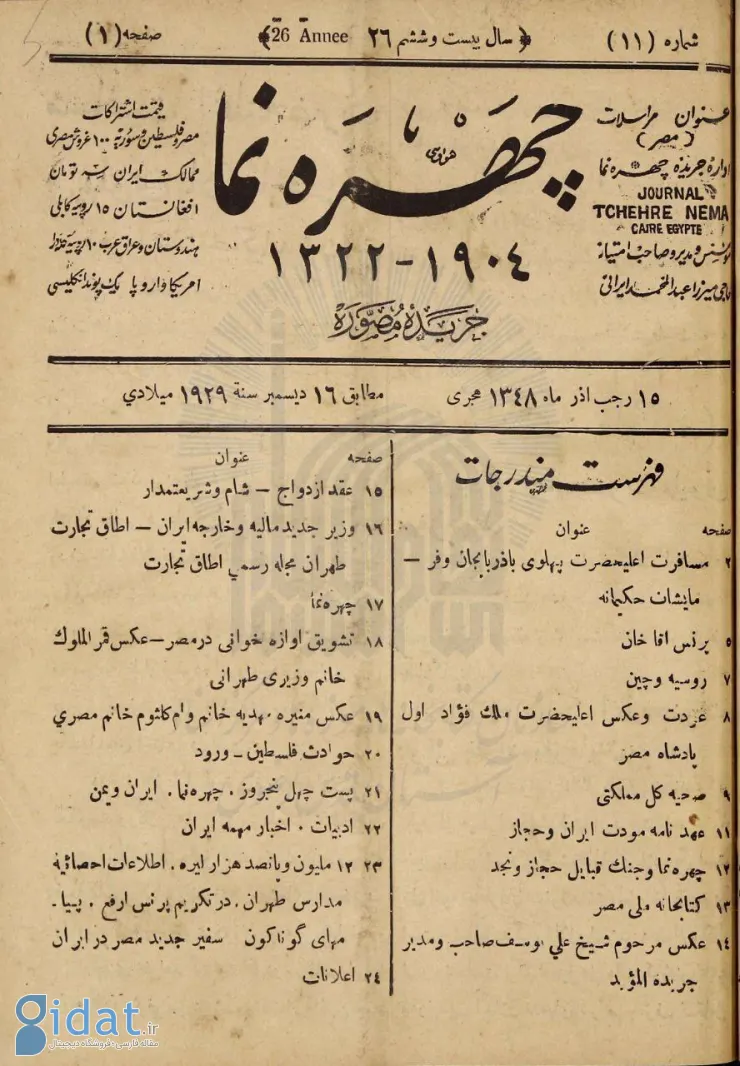 شماره (۱۱)
سال بیست وششم ۲۶ 26 Annee
صفحه (۱)
عنوان مراسلات
(مصر)
اداره جریده چهره نما
JOURNAL
TCHEHRE NEMA
CAIRE EGYPTE
مؤسس ومدیر وصاحب امتیاز
حاجی میرزا عبدالمحمد ایرانی
چهره نما
۱۳۲۲-۱۹۰٤
جریدۀ مصوره
قیمت اشتراکات
مصر وفلسطین وسوریه ۱۰۰ غروش مصری
ممالک ایران سه تومان
افغانستان ۱۵ روپیه کابلی
هندوستان وعراق عرب ۱۰ روپیه کلدار
امریکا واروپا یک پوند انکلیسی
۱۵ رجب اذر ماه ۱۳٤۸ هجری
مطابق ۱٦ دیسمبر سنة ۱۹۲۹ میلادي
فهرست مندرجات
صفحه عنوان
۲ مسافرت اعلیحضرت پهلوی باذربایجان وفر —
مایشات حکیمانه
۵ پرنس اقا خان
۷ روسیه وچین
۸ عودت وعکس اعلیحضرت ملك فؤاد اول
پادشاه مصر
۹ صحیه کل مملکتی
۱۱ عهد نامه مودت ایران وحجاز
۱۲ چهره نما وجنك قبایل حجاز ونجد
۱۳ کتابخانه ملی مصر
۱٤ عکس مرحوم شیخ علي یوسف صاحب ومدیر
جریده المؤید
صفحه عنوان
۱۵ عقد ازدواج — شام وشریعتمدار
۱٦ وزیر جدید مالیه وخارجه ایران — اطاق تجارت
طهران مجله رسمي اطاق تجارت
۱۷ چهره نما
۱۸ تشویق اوازه خوانی در مصر — عکس قمر الملوك
خانم وزیری طهرانی
۱۹ عکس منیره مهدیه خانم وام کلثوم خانم مصري
۲۰ حوادث فلسطین - ورود
۲۱ پست چهل پنجروز . چهره نما . ایران ویمن
۲۲ ادبیات . اخبار مهمه ایران
۲۳ ۱۲ ملیون وپانصد هزار لیره . اطلاعات احصائیة
مدارس طهران . در تکریم پرنس ارفع . پیا -
مهای گوناکون سفیر جدید مصر در ایران
۲٤ اعلانات
gidat.ir
مقاله فارسی • فروشگاه دیجیتال